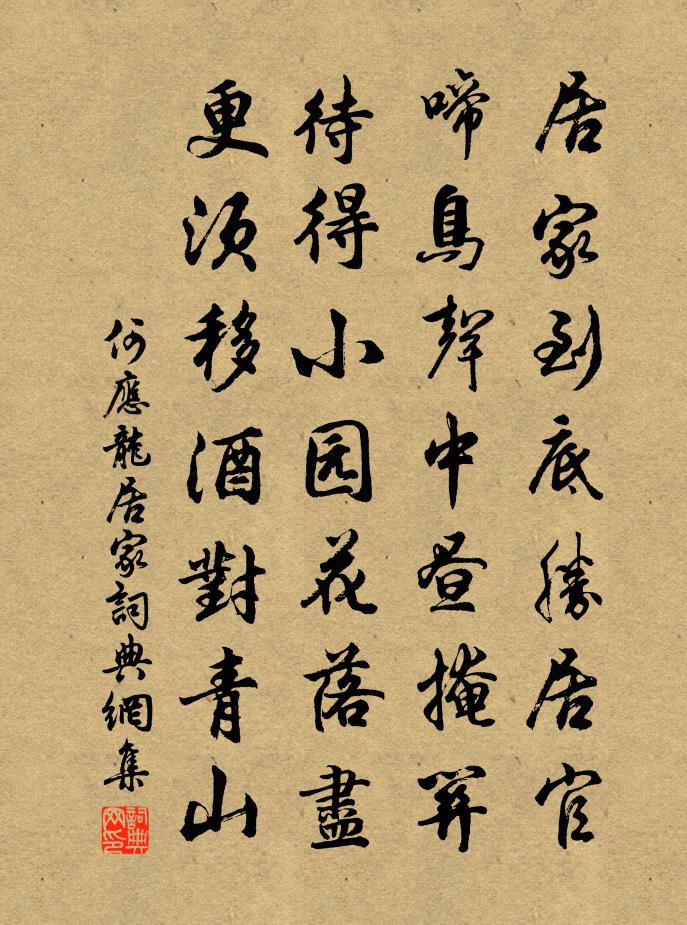 居家到底勝居官
啼鳥聲中昼掩关
待得小园花落盡
更須移酒對青山
何應龍居家詞典網集
詞典网印